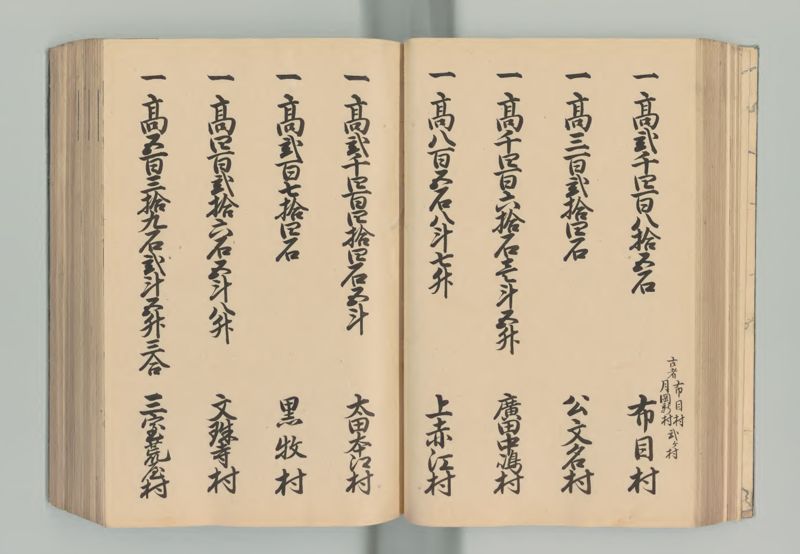 一高弐千四百八拾五石 布目村
古者布目村
月岡新村弐ヶ村
一高三百弐拾四石 公文名村
一高千四百六拾石壱斗五升 廣田中嶋村
一高八百五石八斗七升 上赤江村
一高弐千四百四拾四石五斗 太田本江村
一高弐百七拾四石 黒牧村
一高四百弐拾六石五斗八升 文珠寺村
一高五百三拾九石弐斗五升三合 三室荒屋村